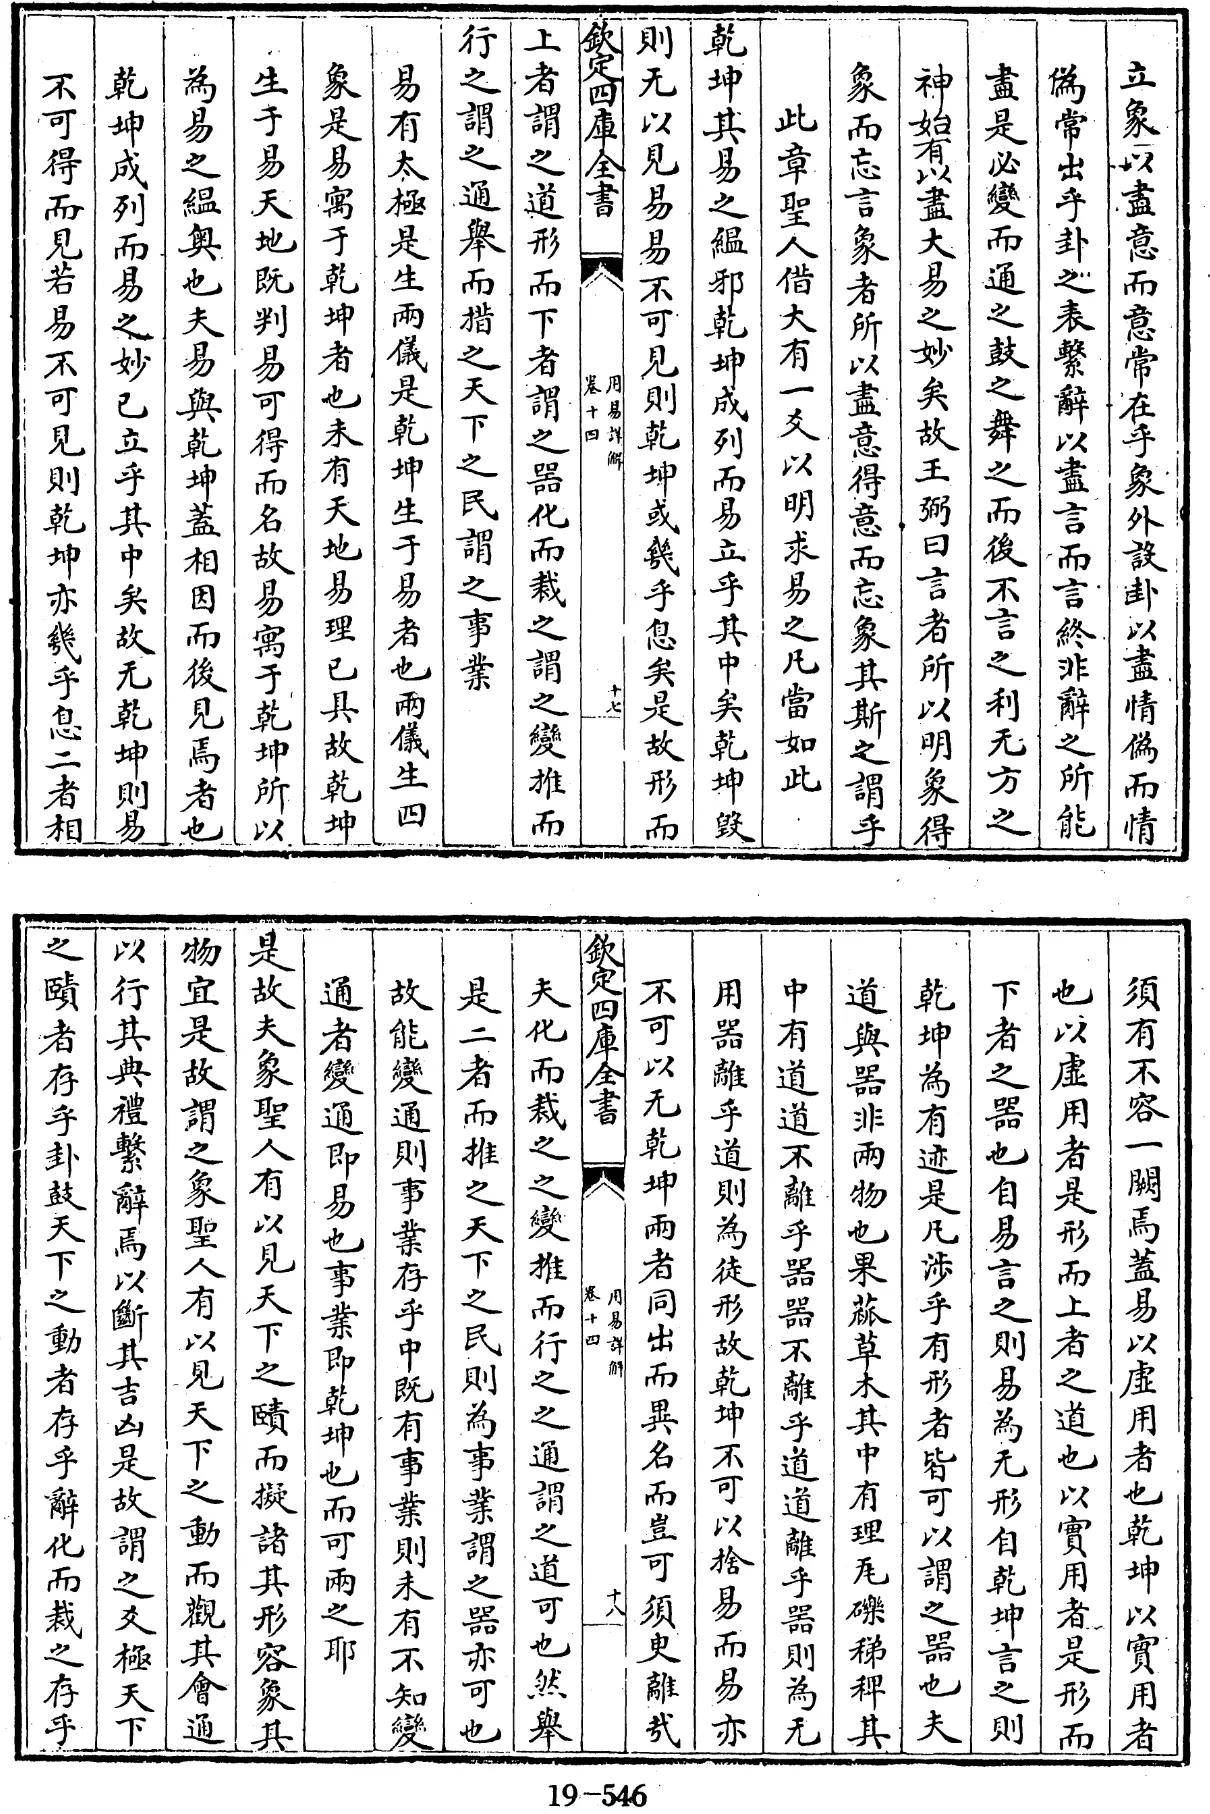 立象以盡意而意常在乎象外設卦以盡情僞而情
僞常出乎卦之表繫辭以盡言而言終非辭之所能
盡是必變而通之鼓之舞之而後不言之利无方之
神始有以盡大易之妙矣故王弼曰言者所以明象得
象而忘言象者所以盡意得意而忘象其斯之謂乎
此章聖人借大有一爻以明求易之凡當如此
乾坤其易之緼邪乾坤成列而易立乎其中矣乾坤毀
則无以見易易不可見則乾坤或幾乎息矣是故形而
欽定四庫全書
周易詳解
卷十四
十七
上者謂之道形而下者謂之器化而裁之謂之變推而
行之謂之通舉而措之天下之民謂之事業
易有太極是生兩儀是乾坤生于易者也兩儀生四
象是易寓于乾坤者也未有天地易理已具故乾坤
生于易天地既判易可得而名故易寓于乾坤所以
為易之緼奥也夫易與乾坤蓋相因而後見焉者也
乾坤成列而易之妙已立乎其中矣故无乾坤則易
不可得而見若易不可見則乾坤亦幾乎息二者相
須有不容一闕焉蓋易以虚用者也乾坤以實用者
也以虚用者是形而上者之道也以實用者是形而
下者之器也自易言之則易為无形自乾坤言之則
乾坤為有迹是凡涉乎有形者皆可以謂之器也夫
道與器非兩物也果蓏草木其中有理瓦礫稊稗其
中有道道不離乎器器不離乎道道離乎器則為无
用器離乎道則為徒形故乾坤不可以捨易而易亦
不可以无乾坤兩者同出而異名而豈可須臾離哉
欽定四庫全書
周易詳解
卷十四
十八
夫化而裁之之變推而行之之通謂之道可也然舉
是二者而推之天下之民則為事業謂之器亦可也
故能變通則事業存乎中既有事業則未有不知變
通者變通即易也事業即乾坤也而可兩之耶
是故夫象聖人有以見天下之賾而擬諸其形容象其
物宜是故謂之象聖人有以見天下之動而觀其會通
以行其典禮繫辭焉以斷其吉凶是故謂之爻極天下
之賾者存乎卦鼓天下之動者存乎辭化而裁之存乎
19-546